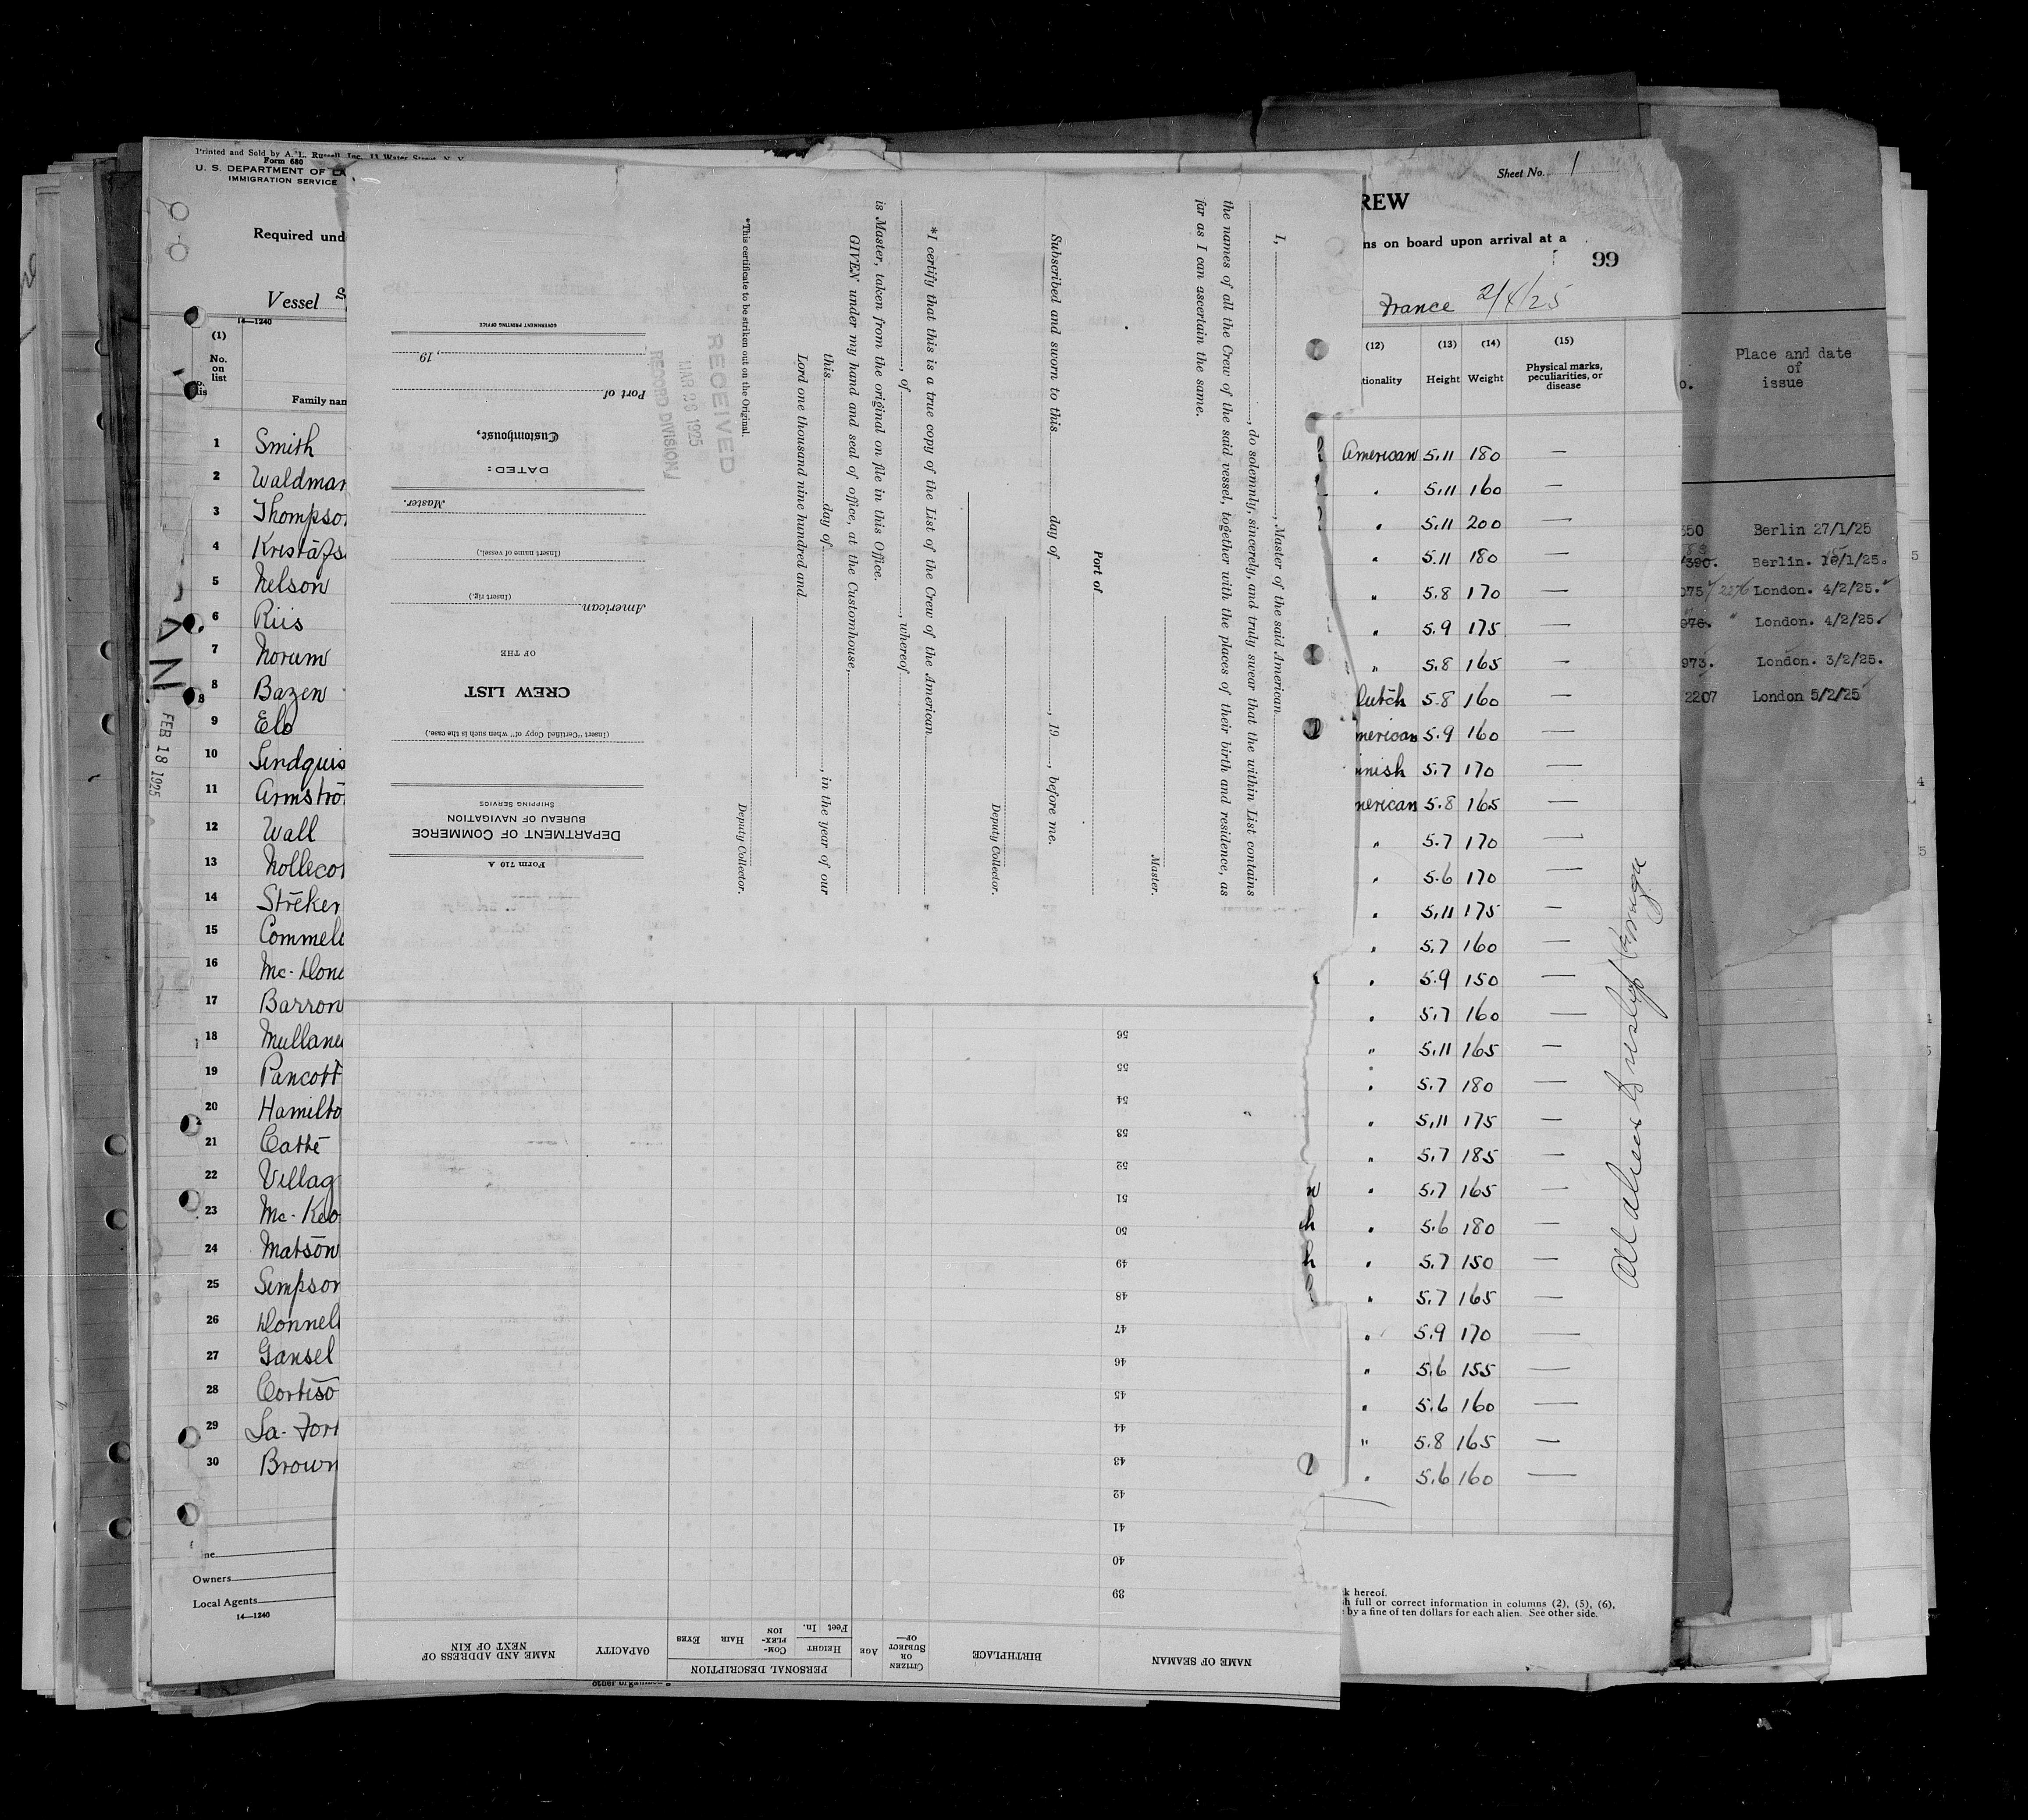 Printed and Sold by A. L. Russell, Inc., 11 Water Street, N. Y.
Form 680
U. S. DEPARTMENT OF LA
IMMIGRATION SERVICE
Required und
Vessel S
14—1240
(1)
No.
on
list
Family nam
1 Smith
2 Waldman
3 Thompso
4 Kristafs
5 Nelson
6 Riis
7 Norum
8 Bazen
9 Elo
10 Lindquis
11 Armstro
12 Wall
13 Nolleco
14 Streker
15 Commell
16 Mc-Dona
17 Barron
18 Mullane
19 Pancott
20 Hamilto
21 Catte
22 Villag
23 Mc-Keo
24 Matson
25 Simpson
26 Donnell
27 Gansel
28 Cortiso
29 La-Fort
30 Brown
FEB 18 1925
ne
Owners
Local Agents
14—1240
I, , Master of the said American
, do solemnly, sincerely, and truly swear that the within List contains
the names of all the Crew of the said vessel, together with the places of their birth and residence, as
far as I can ascertain the same.
Master.
Port of
Subscribed and sworn to this day of , 19 , before me.
Deputy Collector.
*I certify that this is a true copy of the List of the Crew of the American
, of , whereof
is Master, taken from the original on file in this Office.
GIVEN under my hand and seal of office, at the Customhouse,
this day of , in the year of our
Lord one thousand nine hundred and
Deputy Collector.
*This certificate to be striken out on the Original.
RECEIVED
MAR 26 1925
RECORD DIVISION
Form 710 A
DEPARTMENT OF COMMERCE
BUREAU OF NAVIGATION
SHIPPING SERVICE
(Insert "Certified Copy of" when such is the case.)
CREW LIST
OF THE
American
(Insert rig.)
(Insert name of vessel.)
Master.
DATED:
Customhouse,
Port of
, 19
GOVERNMENT PRINTING OFFICE
NAME OF SEAMAN
BIRTHPLACE
CITIZEN OR SUBJECT OF—
AGE
PERSONAL DESCRIPTION
HEIGHT
Feet In.
COM-PLEX-ION
HAIR
EYES
CAPACITY
NAME AND ADDRESS OF NEXT OF KIN
39
40
41
42
43
44
45
46
47
48
49
50
51
52
53
54
55
56
Sheet No. 1
REW
ns on board upon arrival at a
99
France 2/4/25
(12) (13) (14) (15)
tionality Height Weight Physical marks, peculiarities, or disease
American 5.11 180 —
" 5.11 160 —
" 5.11 200 —
" 5.11 180 —
" 5.8 170 —
" 5.9 175 —
" 5.8 165 —
Dutch 5.8 160 —
merican 5.9 160 —
innish 5.7 170 —
merican 5.8 165 —
" 5.7 170 —
" 5.6 170 —
" 5.11 175 —
" 5.7 160 —
" 5.9 150 —
" 5.7 160 —
" 5.11 165 —
" 5.7 180 —
" 5.11 175 —
" 5.7 185 —
" 5.7 165 —
" 5.6 180 —
" 5.7 150 —
" 5.7 165 —
" 5.9 170 —
" 5.6 155 —
" 5.6 160 —
" 5.8 165 —
" 5.6 160 —
k hereof.
sh full or correct information in columns (2), (5), (6),
by a fine of ten dollars for each alien. See other side.
Place and date
of
issue
350 Berlin 27/1/25
390. Berlin. /1/25.
075 2276 London. 4/2/25.
976. " London. 4/2/25.
973. London. 3/2/25.
2207 London 5/2/25